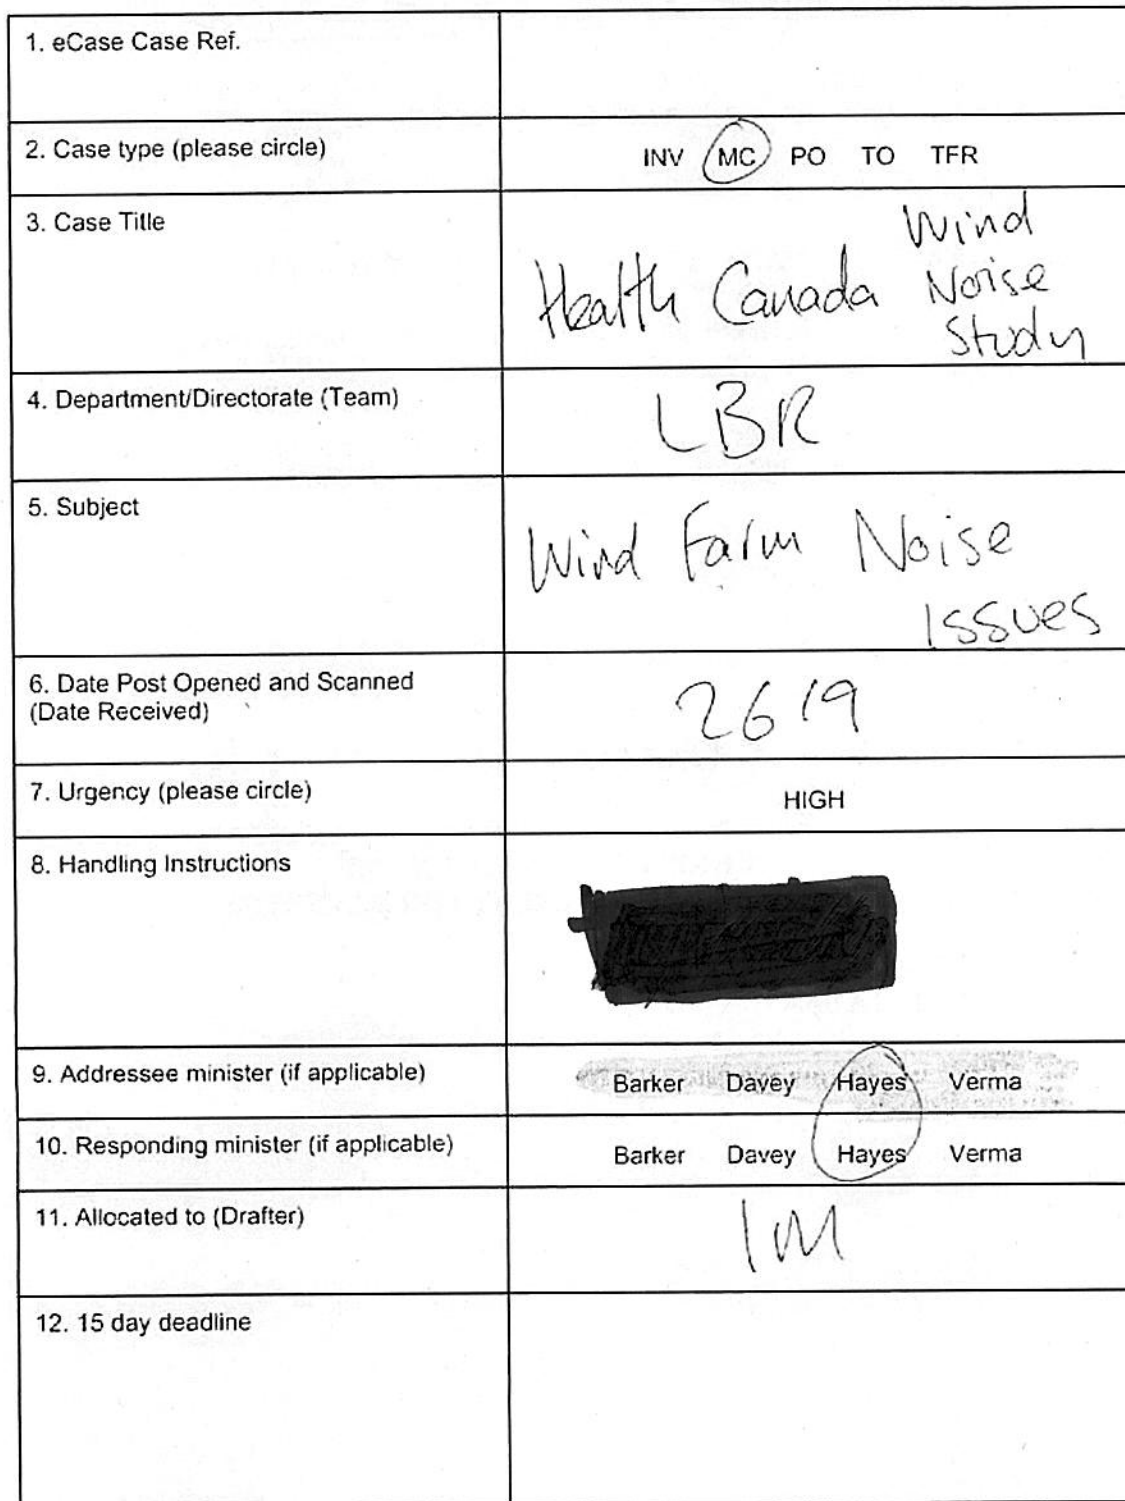 1. eCase Case Ref.
2. Case type (please circle)
INV MC PO TO TFR
3. Case Title
Health Canada Wind
Noise
Study
4. Department/Directorate (Team)
LBR
5. Subject
Wind Farm Noise
Issues
6. Date Post Opened and Scanned
(Date Received)
26/9
7. Urgency (please circle)
HIGH
8. Handling Instructions
9. Addressee minister (if applicable)
Barker Davey Hayes Verma
10. Responding minister (if applicable)
Barker Davey Hayes Verma
11. Allocated to (Drafter)
IM
12. 15 day deadline